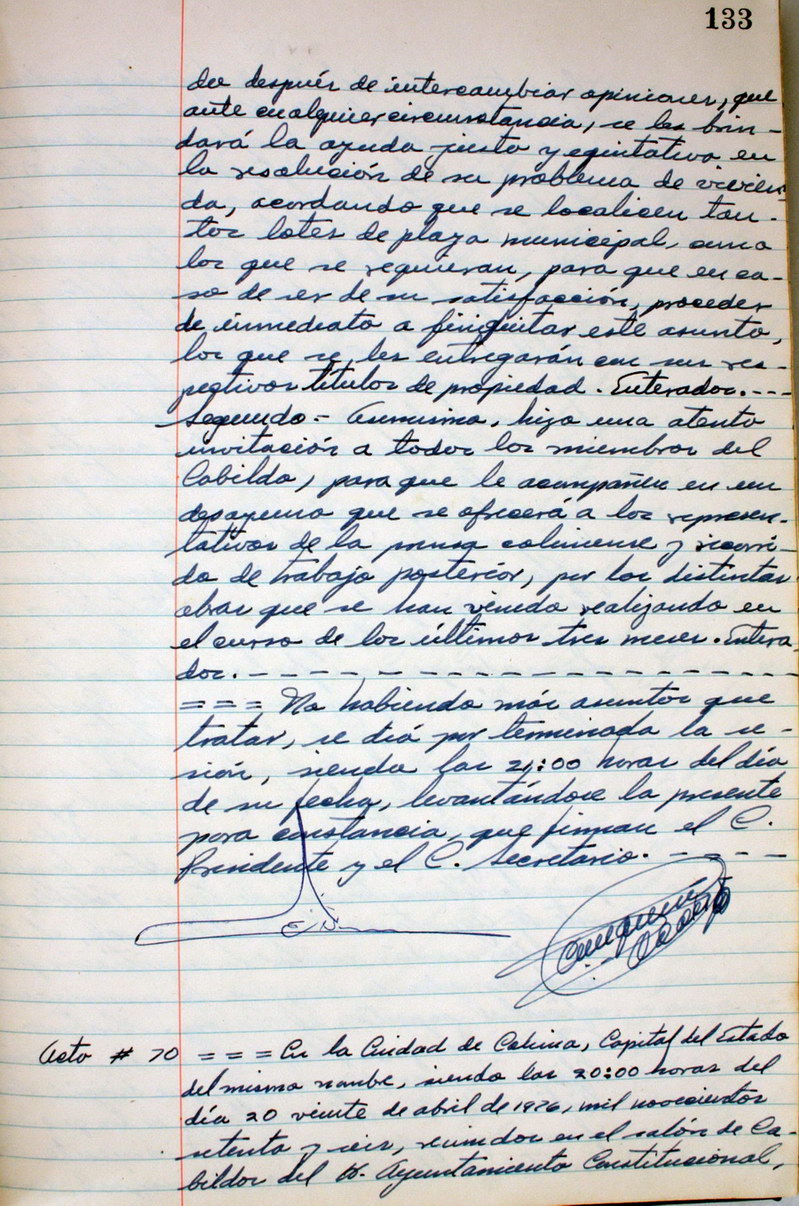 133
do después de intercambiar opiniones, que
ante cualquier circunstancia, se les brin-
dará la ayuda justa y equitativa en
la resolución de su problema de vivien-
da, acordando que se localicen tan-
tos lotes de plaza municipal, como
los que se requieran, para que en ca-
so de ser de su satisfacción, proceder
de inmediato a finiquitar este asunto,
los que se les entregarán con sus res-
pectivos títulos de propiedad. Enterados.---
Segundo.- Asimismo, hizo una atenta
invitación a todos los miembros del
Cabildo, para que le acompañen en un
desayuno que se ofrecerá a los represen-
tativos de la prensa colimense y recorri-
do de trabajo posterior, por las distintas
obras que se han venido realizando en
el curso de los últimos tres meses. Entera-
dos.- - - - - - - - - - - - - - - -
= = = No habiendo más asuntos que
tratar, se dió por terminada la se-
sión, siendo las 21:00 horas del día
de su fecha, levantándose la presente
para constancia, que firman el C.
Presidente y el C. Secretario.- - - - -
Acta # 70 = = = En la Ciudad de Colima, Capital del Estado
del mismo nombre, siendo las 20:00 horas del
día 20 veinte de abril de 1976, mil novecientos
setenta y seis, reunidos en el salón de Ca-
bildos del H. Ayuntamiento Constitucional,